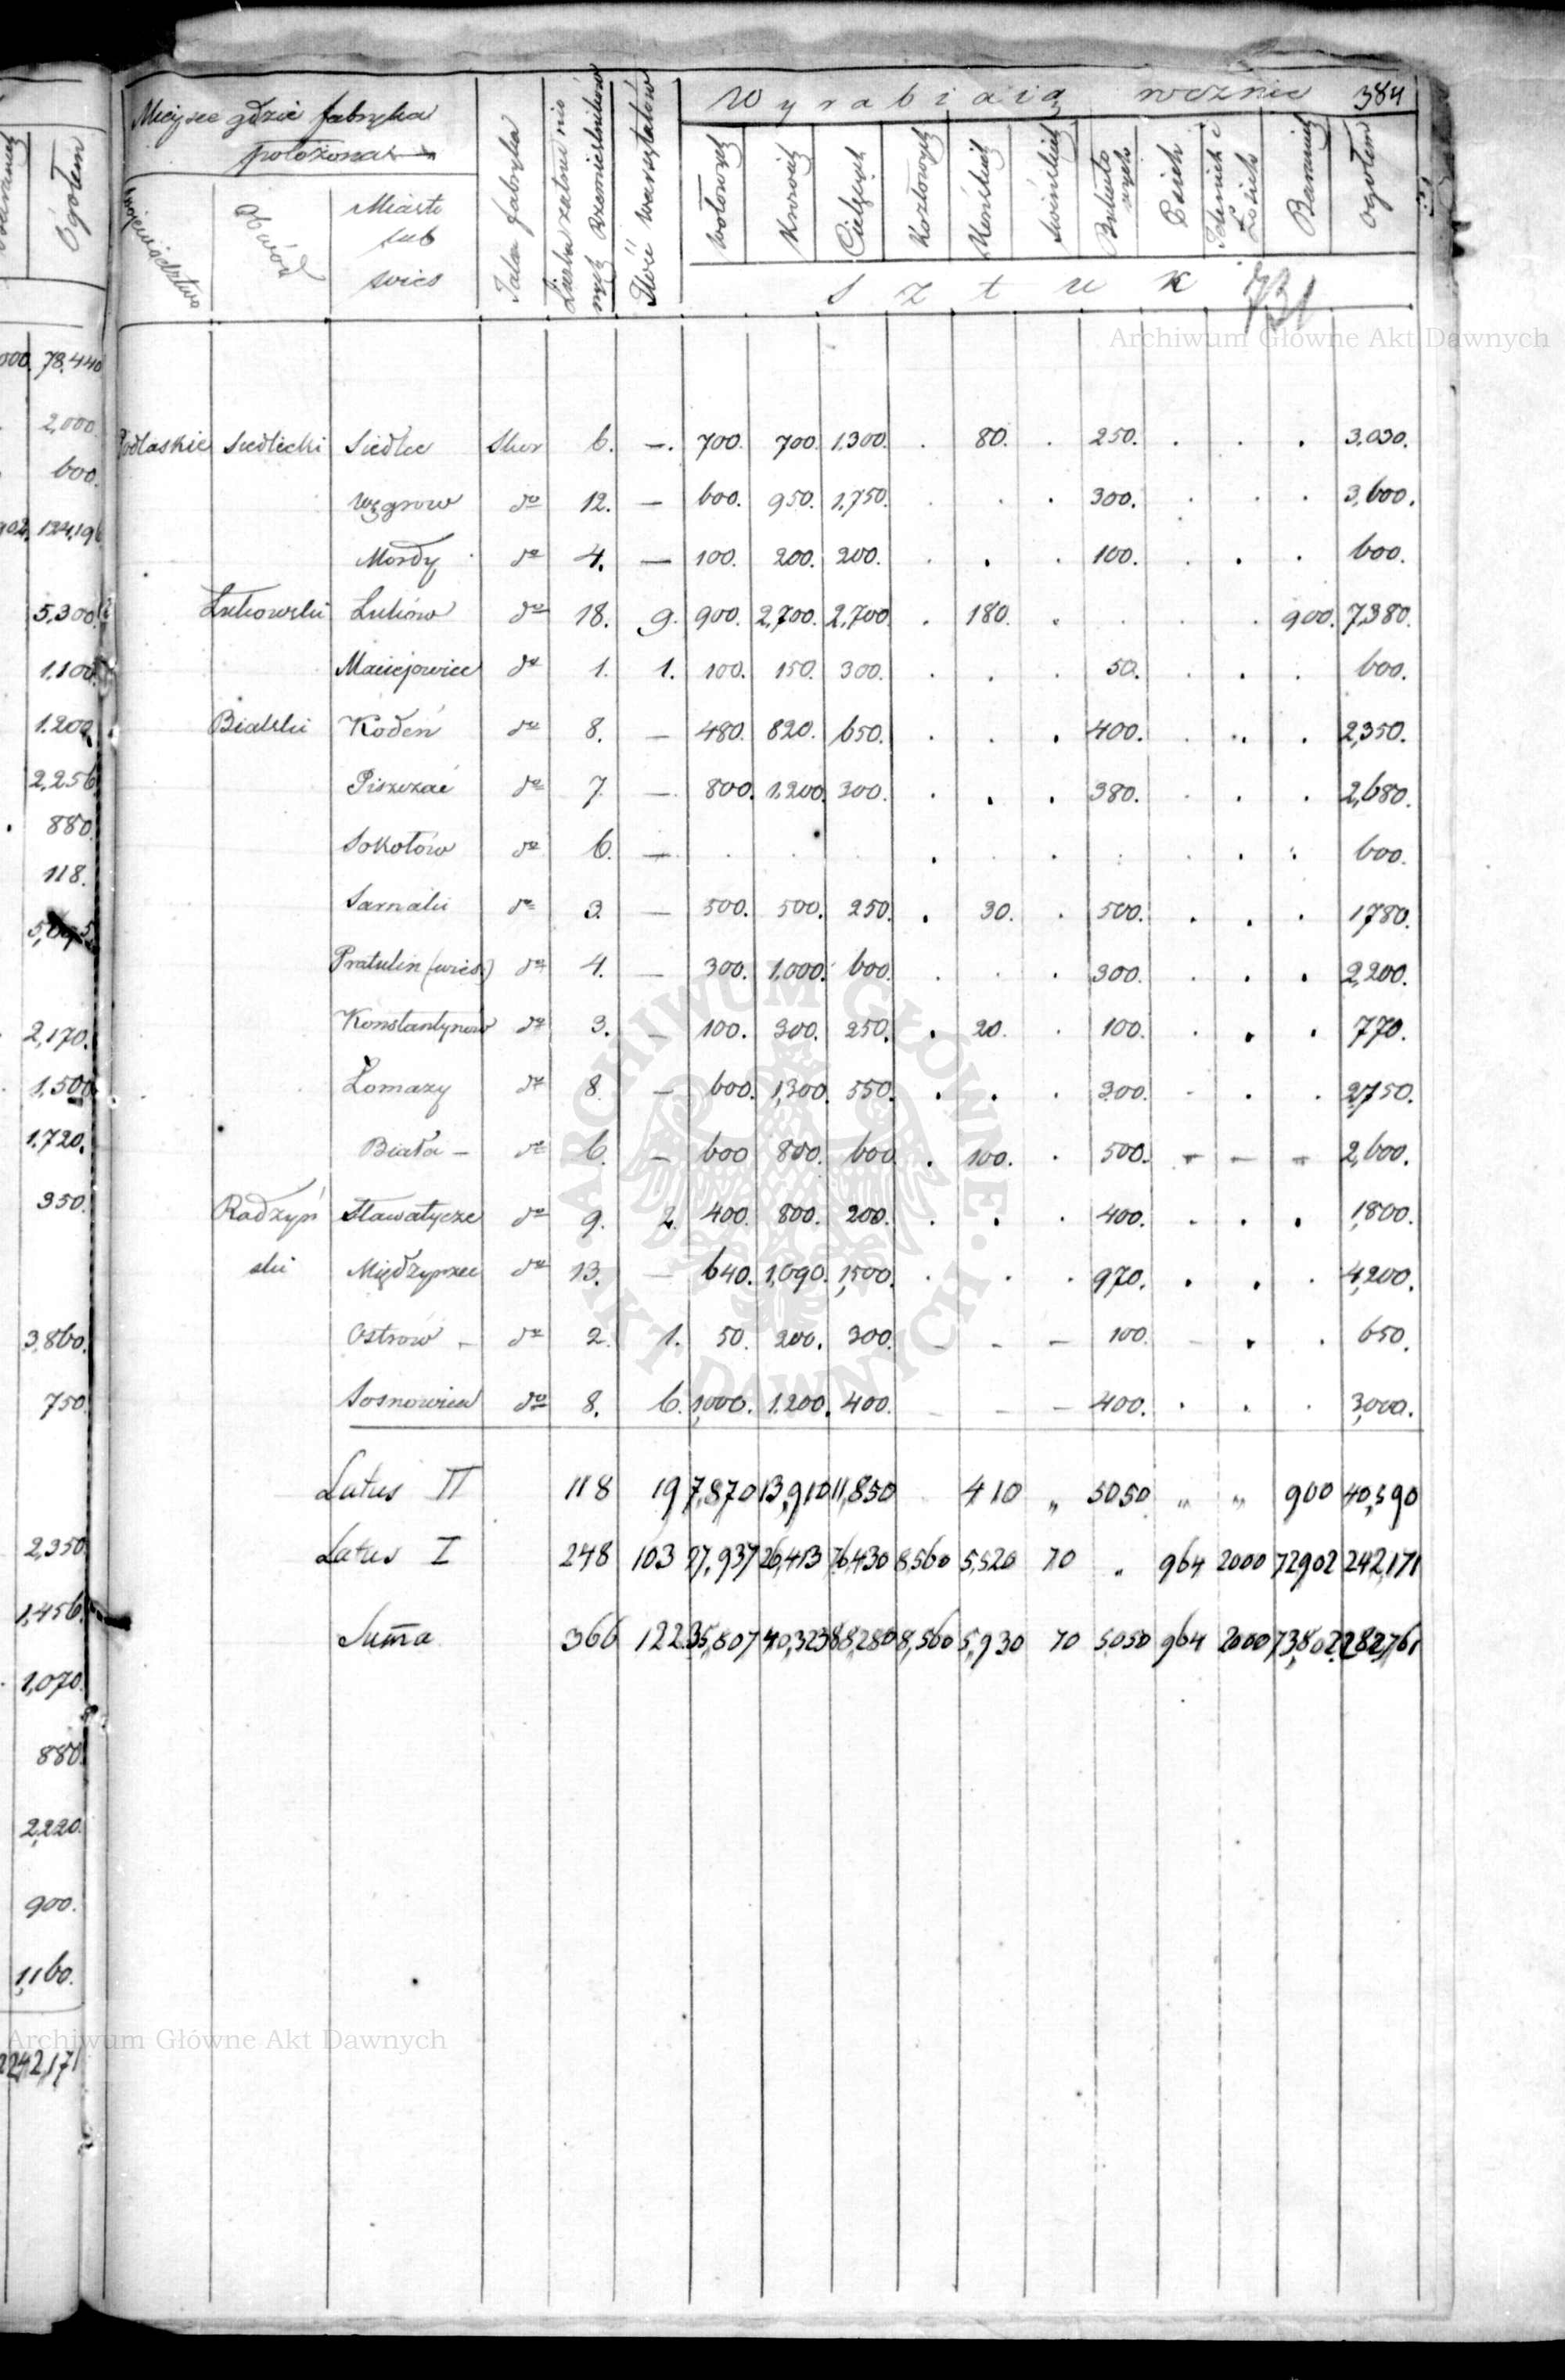 Ogółem
78,440
2,000.
600.
902. 124,196
5,300.
1,100.
1,200.
2,256.
880.
118.
2,170.
1,500.
1,720.
350.
3,860.
750.
2,350.
1,456.
1,070.
880.
2,220.
900.
1,160.
242,171
Miejsce gdzie fabryka
położona
Województwo
Obwód
Miasto
lub
wieś
Jaka fabryka
Ilość warsztatów
Wyrabiaią rocznie 384
Wołowych
Krowich
Cielęcych
Kozłowych
Końskich
Świńskich
Psich
Baranich
Ogółem
Sztuk 731
Podlaskie Siedlecki Siedlce Skór 6. —. 700. 700. 1,300. . 80. . 250. . . . 3,030.
Węgrow do 12. — 600. 950. 1,750. . . . 300. . . . 3,600.
Mordy do 4. — 100. 200. 200. . . . 100. . . . 600.
Łukowski Łuków do 18. 9. 900. 2,700. 2,700. . 180. . . . . 900. 7,380.
Maciejowice do 1. 1. 100. 150. 300. . . . 50. . . . 600.
Bialski Kodeń do 8. — 480. 820. 650. . . . 400. . . . 2,350.
Piszczać do 7. — 800. 1,200. 300. . . . 380. . . . 2,680.
Sokołów do 6. — . . . . . . . . . . 600.
Sarnaki do 3. — 500. 500. 250. . 30. . 500. . . . 1780.
Pratulin (wieś) do 4. — 300. 1,000. 600. . . . 300. . . . 2,200.
Konstantynow do 3. — 100. 300. 250. . 20. . 100. . . . 770.
Łomazy do 8. — 600. 1,300. 550. . . . 300. . . . 2,750.
Biała — do 6. — 600 800. 600 . 100. . 500. — — — 2,600.
Radzyń Sławatycze do 9. 2. 400. 800. 200. . . . 400. . . . 1,800.
ski Międzyrzec do 13. — 640. 1,090. 1,500. . . . 970. . . . 4,200.
Ostrów — do 2. 1. 50. 200. 300. — — — 100. — . . 650.
Sosnowica do 8. 6. 1,000. 1,200. 400. — — — 400. . . . 3,000.
Latus II 118 19 7,870 13,910 11,850 410 „ 5050 „ „ 900 40,590
Latus I 248 103 27,937 26,413 76,430 8,560 5,520 70 „ 964 2000 72902 242,171
Suma 366 122 35,807 40,323 88,280 8,560 5,930 70 5050 964 2000 73,802 282,761
Archiwum Główne Akt Dawnych
ARCHIWUM GŁÓWNE · AKT DAWNYCH ·
Archiwum Główne Akt Dawnych